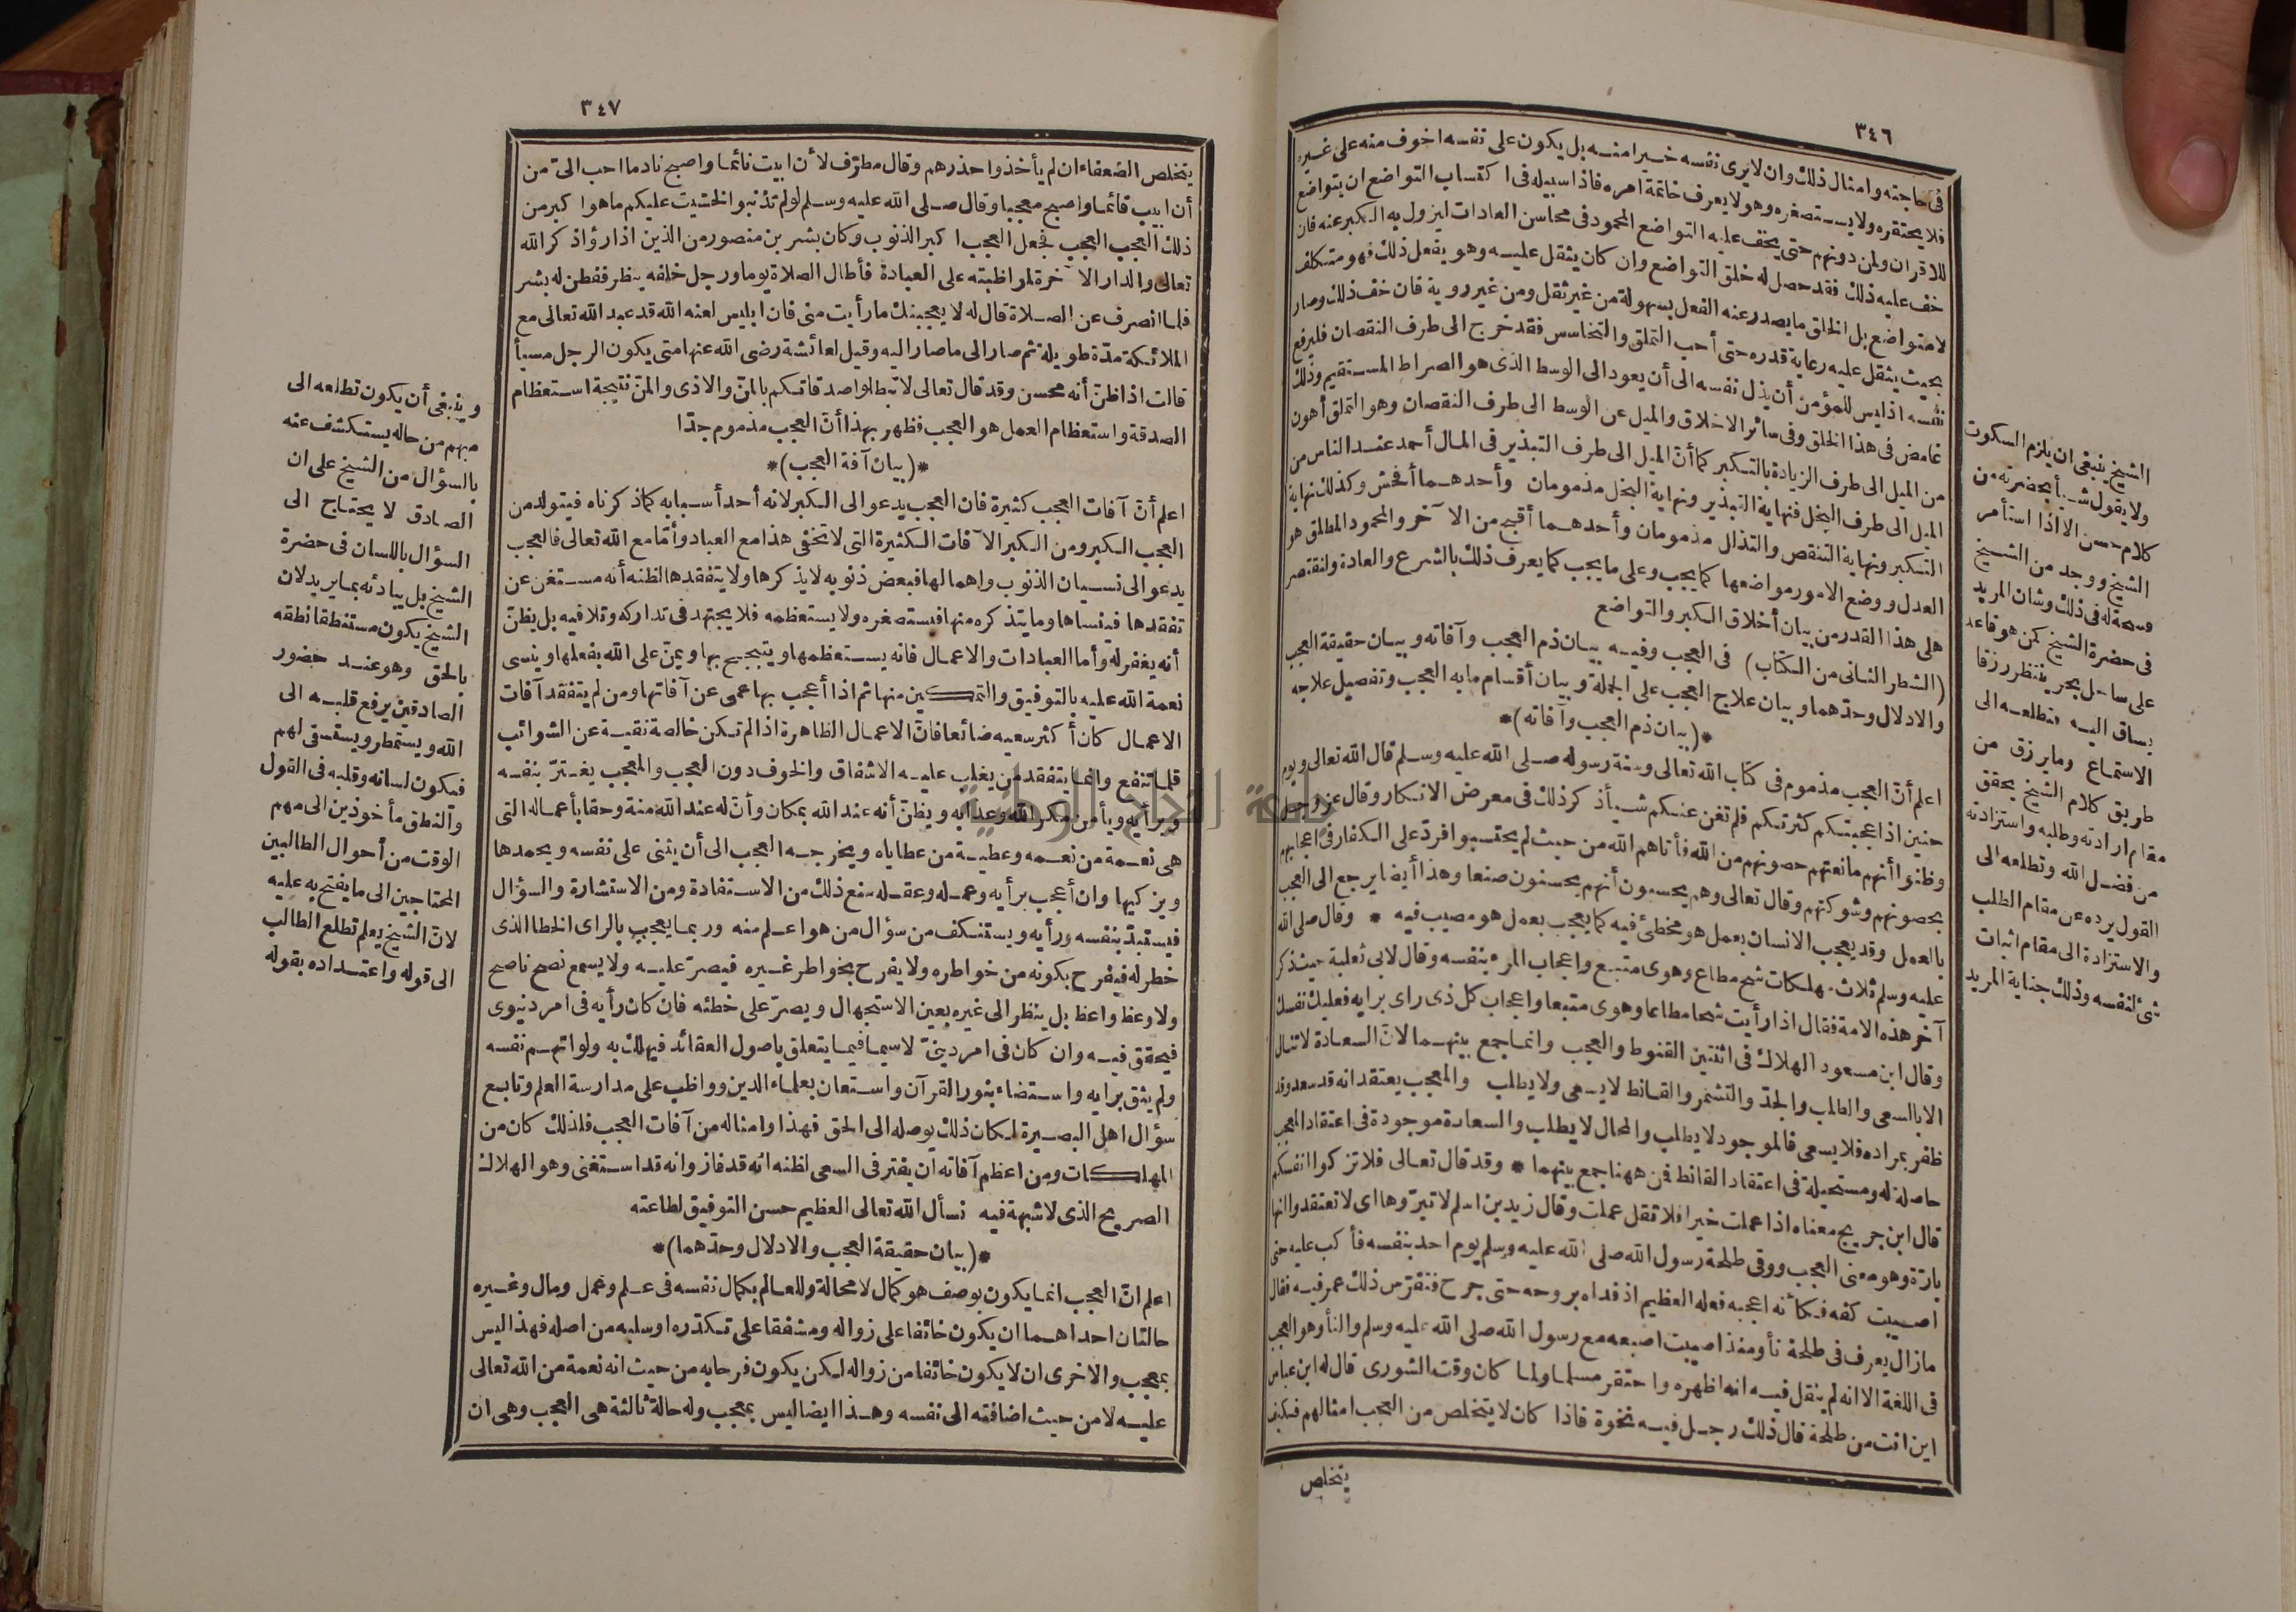 ٣٤٦
فى حاجته وامثال ذلك وان لا يرى نفسه خيرا منه بل يكون على نفسه اخوف منه على غيره
فلا يحتقره ولا يستصغره وهو لا يعرف خاتمة امره فاذا سبيله فى اكتساب التواضع ان يتواضع
للاقران ولمن دونهم حتى يخف عليه التواضع المحمود فى محاسن العادات ليزول به الكبر عنه فان
خف عليه ذلك فقد حصل له خلق التواضع وان كان يثقل عليه وهو يفعل ذلك فهو متكلف
لا متواضع بل الخلق ما يصدر عنه الفعل بسهولة من غير ثقل ومن غير روية فان خف ذلك وصار
بحيث يثقل عليه رعاية قدره حتى أحب التملق والتخاسس فقد خرج الى طرف النقصان فليرفع
نفسه اذ ليس للمؤمن أن يذل نفسه الى أن يعود الى الوسط الذى هو الصراط المستقيم وذلك
غامض فى هذا الخلق وفى سائر الاخلاق والميل عن الوسط الى طرف النقصان وهو التملق أهون
من الميل الى طرف الزيادة بالتكبر كما أنّ الميل الى طرف التبذير فى المال أحمد عند الناس من
الميل الى طرف البخل فنهاية التبذير ونهاية البخل مذمومان وأحدهما أفحش وكذلك نهاية
التكبر ونهاية التنقص والتذال مذمومان وأحدهما أقبح من الآخر والمحمود المطلق هو
العدل ووضع الامور مواضعها كما يجب وعلى ما يجب كما يعرف ذلك بالشرع والعادة ولنقتصر
على هذا القدر من بيان أخلاق الكبر والتواضع
(الشطر الثانى من الكتاب) فى العجب وفيه بيان ذم العجب وآفاته وبيان حقيقة العجب
والادلال وحدّهما وبيان علاج العجب على الجملة وبيان أقسام ما به العجب وتفصيل علاجه
*(بيان ذم العجب وآفاته)*
اعلم أنّ العجب مذموم فى كتاب الله تعالى وسنة رسوله صلى الله عليه وسلم قال الله تعالى ويوم
حنين اذ اعجبتكم كثرتكم فلم تغن عنكم شيأ ذكر ذلك فى معرض الانكار وقال عز وجل
وظنوا أنهم مانعتهم حصونهم من الله فأتاهم الله من حيث لم يحتسبوا فردّ على الكفار فى اعجابهم
بحصونهم وشوكتهم وقال تعالى وهم يحسبون أنهم يحسنون صنعا وهذا أيضا يرجع الى العجب
بالعمل وقد يعجب الانسان بعمل هو مخطئ فيه كما يعجب بعمل هو مصيب فيه * وقال صلى الله
عليه وسلم ثلاث مهلكات شح مطاع وهوى متبع واعجاب المرء بنفسه وقال لابى ثعلبة حيث ذكر
آخر هذه الامة فقال اذا رأيت شحا مطاعا وهوى متبعا واعجاب كل ذى راى برايه فعليك نفسك
وقال ابن مسعود الهلاك فى اثنتين القنوط والعجب وانما جمع بينهما لانّ السعادة لا تنال
الا بالسعى والطلب والجدّ والتشمر والقانط لا يسعى ولا يطلب والمعجب يعتقد انه قد سعد وقد
ظفر بمراده فلا يسعى فالموجود لا يطلب والمحال لا يطلب والسعادة موجودة فى اعتقاد المعجب
حاصلة له ومستحيلة فى اعتقاد القانط فمن ههنا جمع بينهما * وقد قال تعالى فلا تزكوا انفسكم
قال ابن جريج معناه اذا عملت خيرا فلا تقل عملت وقال زيد بن اسلم لا تبرّوها اى لا تعتقدوا انها
بارّة وهو معنى العجب ووقى طلحة رسول الله صلى الله عليه وسلم يوم احد بنفسه فأكب عليه حتى
اصيبت كفه فكأنه اعجبه فعله العظيم اذ فداه بروحه حتى جرح فتفرّس ذلك عمر فيه فقال
ما زال يعرف فى طلحة نأو منذ اصيبت اصبعه مع رسول الله صلى الله عليه وسلم والنأو هو العجب
فى اللغة الا انه لم ينقل فيه انه اظهره واحتقر مسلما ولما كان وقت الشورى قال له ابن عباس
اين انت من طلحة قال ذلك رجل فيه نخوة فاذا كان لا يتخلص من العجب امثالهم فكيف
يتخلص
الشيخ ينبغى ان يلزم السكوت
ولا يقول شيأ بحضرته من
كلام حسن الا اذا استأمر
الشيخ ووجد من الشيخ
فسحة له فى ذلك وشان المريد
فى حضرة الشيخ كمن هو قاعد
على ساحل بحر ينتظر رزقا
يساق اليه فتطلعه الى
الاستماع وما يرزق من
طريق كلام الشيخ يحقق
مقام ارادته وطلبه واستزادته
من فضل الله وتطلعه الى
القول يرده عن مقام الطلب
والاستزادة الى مقام اثبات
شئ لنفسه وذلك جناية المريد
٣٤٧
يتخلص الضعفاء ان لم يأخذوا حذرهم وقال مطرّف لأن ابيت نائما واصبح نادما احب الىّ من
أن ابيت قائما واصبح معجبا وقال صلى الله عليه وسلم لو لم تذنبوا لخشيت عليكم ما هو اكبر من
ذلك العجب العجب فجعل العجب اكبر الذنوب وكان بشر بن منصور من الذين اذا رؤا ذكر الله
تعالى والدار الآخرة لمواظبته على العبادة فأطال الصلاة يوما ورجل خلفه ينظر ففطن له بشر
فلما انصرف عن الصلاة قال له لا يعجبنك ما رأيت منى فان ابليس لعنه الله قد عبد الله تعالى مع
الملائكة مدّة طويلة ثم صار الى ما صار اليه وقيل لعائشة رضى الله عنها متى يكون الرجل مسيأ
قالت اذا ظنّ أنه محسن وقد قال تعالى لا تبطلوا صدقاتكم بالمنّ والاذى والمنّ نتيجة استعظام
الصدقة واستعظام العمل هو العجب فظهر بهذا أنّ العجب مذموم جدّا
*(بيان آفة العجب)*
اعلم أنّ آفات العجب كثيرة فان العجب يدعو الى الكبر لانه أحد أسبابه كما ذكرناه فيتولد من
العجب الكبر ومن الكبر الآفات الكثيرة التى لا تخفى هذا مع العباد وأمّا مع الله تعالى فالعجب
يدعو الى نسيان الذنوب واهمالها فبعض ذنوبه لا يذكرها ولا يتفقدها لظنه أنه مستغن عن
تفقدها فينساها وما يتذكره منها فيستصغره ولا يستعظمه فلا يجتهد فى تداركه وتلافيه بل يظنّ
أنه يغفر له وأما العبادات والاعمال فانه يستعظمها ويتبجح بها ويمنّ على الله بفعلها وينسى
نعمة الله عليه بالتوفيق والتمكين منها ثم اذا أعجب بها عمى عن آفاتها ومن لم يتفقد آفات
الاعمال كان أكثر سعيه ضائعا فانّ الاعمال الظاهرة اذا لم تكن خالصة نقية عن الشوائب
قلما تنفع وانما يتفقد من يغلب عليه الاشفاق والخوف دون العجب والمعجب يغترّ بنفسه
وبرأيه ويأمن مكر الله وعذابه ويظنّ أنه عند الله بمكان وأنّ له عند الله منة وحقا بأعماله التى
هى نعمة من نعمه وعطية من عطاياه ويخرجه العجب الى أن يثنى على نفسه ويحمدها
ويزكيها وان أعجب برأيه وعمله وعقله منع ذلك من الاستفادة ومن الاستشارة والسؤال
فيستبدّ بنفسه ورأيه ويستنكف من سؤال من هو اعلم منه وربما يعجب بالراى الخطا الذى
خطر له فيفرح بكونه من خواطره ولا يفرح بخواطر غيره فيصرّ عليه ولا يسمع نصح ناصح
ولا وعظ واعظ بل ينظر الى غيره بعين الاستجهال ويصرّ على خطئه فان كان رأيه فى امر دنيوى
فيحقق فيه وان كان فى امر دينىّ لا سيما فيما يتعلق باصول العقائد فيهلك به ولو اتهم نفسه
ولم يثق برايه واستضاء بنور القرآن واستعان بعلماء الدين وواظب على مدارسة العلم وتابع
سؤال اهل البصيرة لكان ذلك يوصله الى الحق فهذا وامثاله من آفات العجب فلذلك كان من
المهلكات ومن اعظم آفاته ان يفتر فى السعى لظنه انه قد فاز وانه قد استغنى وهو الهلاك
الصريح الذى لا شبهة فيه نسأل الله تعالى العظيم حسن التوفيق لطاعته
*(بيان حقيقة العجب والادلال وحدّهما)*
اعلم انّ العجب انما يكون بوصف هو كمال لا محالة وللعالم بكمال نفسه فى علم وعمل ومال وغيره
حالتان احداهما ان يكون خائفا على زواله ومشفقا على تكدّره او سلبه من اصله فهذا ليس
بمعجب والاخرى ان لا يكون خائفا من زواله لكن يكون فرحا به من حيث انه نعمة من الله تعالى
عليه لا من حيث اضافته الى نفسه وهذا ايضا ليس بمعجب وله حالة ثالثة هى العجب وهى ان
وينبغى أن يكون تطلعه الى
مبهم من حاله يستكشف عنه
بالسؤال من الشيخ على ان
الصادق لا يحتاج الى
السؤال باللسان فى حضرة
الشيخ بل يبادئه بما يريد لان
الشيخ يكون مستنطقا نطقه
بالحق وهو عند حضور
الصادقين يرفع قلبه الى
الله ويستمطر ويستسقى لهم
فيكون لسانه وقلبه فى القول
والنطق مأخوذين الى مهم
الوقت من أحوال الطالبين
المحتاجين الى ما يفتح به عليه
لانّ الشيخ يعلم تطلع الطالب
الى قوله واعتداده بقوله
جامعة النجاح الوطنية